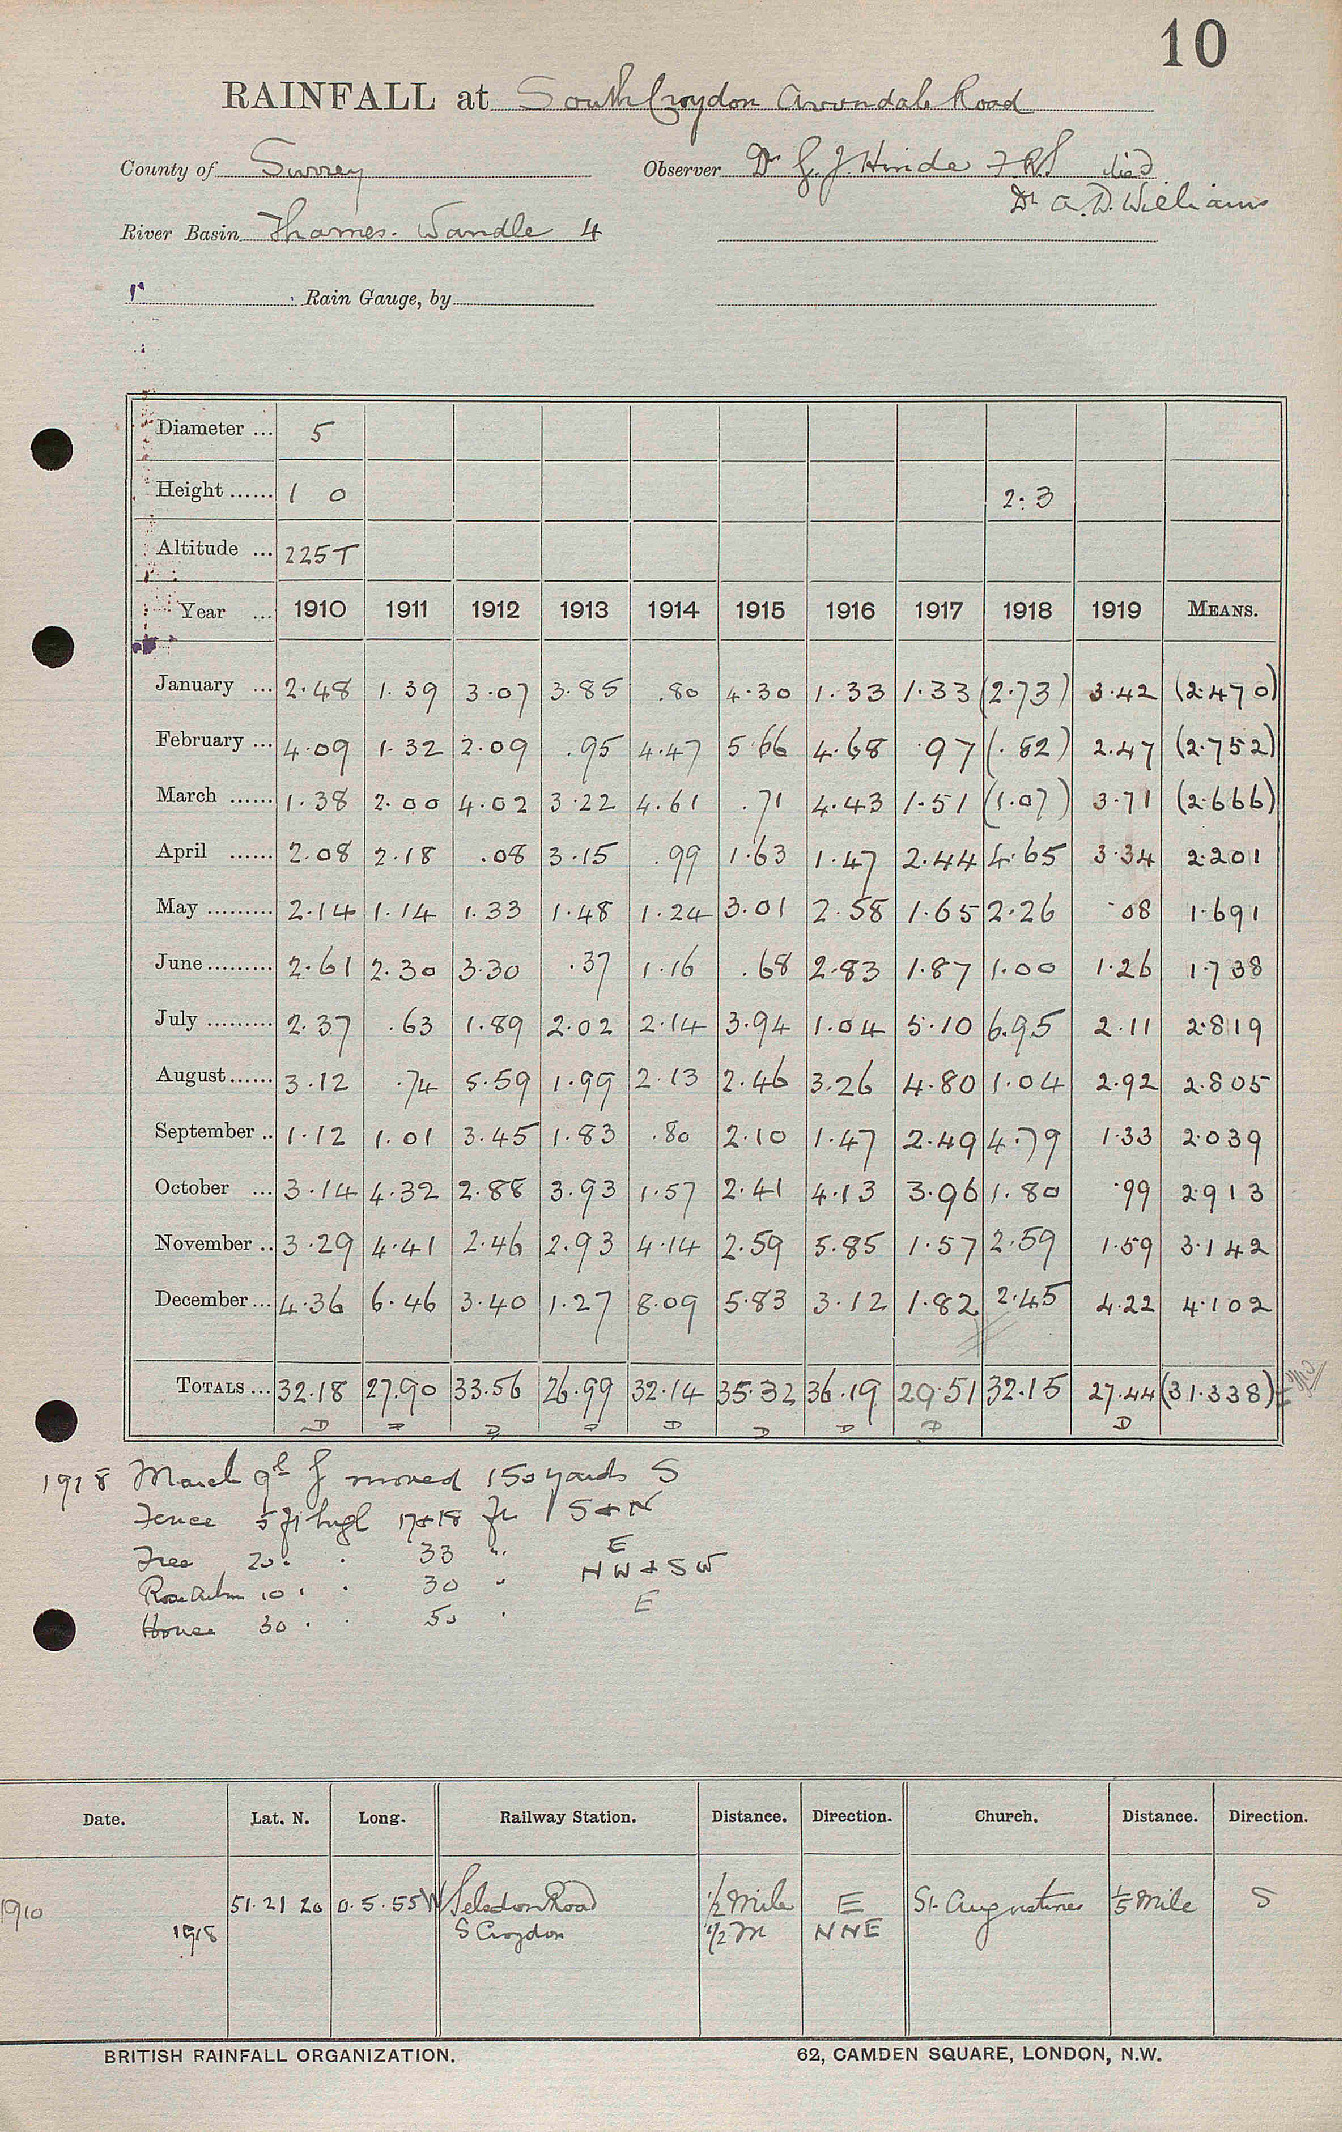 10
RAINFALL at South Croydon Avondale Road
County of Surrey Observer Dr G. J. Hinde F.R.S died
Dr A. D. Williams
River Basin Thames. Wandle 4
Rain Gauge, by
Diameter ... 5
Height ...... 1 0 2.3
Altitude ... 225T
Year ... 1910 1911 1912 1913 1914 1915 1916 1917 1918 1919 MEANS.
January ... 2.48 1.39 3.07 3.85 .80 4.30 1.33 1.33 (2.73) 3.42 (2.470)
February ... 4.09 1.32 2.09 .95 4.47 5.66 4.68 .97 (.82) 2.47 (2.752)
March ...... 1.38 2.00 4.02 3.22 4.61 .71 4.43 1.51 (1.07) 3.71 (2.666)
April ...... 2.08 2.18 .08 3.15 .99 1.63 1.47 2.44 4.65 3.34 2.201
May ......... 2.14 1.14 1.33 1.48 1.24 3.01 2.58 1.65 2.26 .08 1.691
June ......... 2.61 2.30 3.30 .37 1.16 .68 2.83 1.87 1.00 1.26 1.738
July ......... 2.37 .63 1.89 2.02 2.14 3.94 1.04 5.10 6.95 2.11 2.819
August ...... 3.12 .74 5.59 1.99 2.13 2.46 3.26 4.80 1.04 2.92 2.805
September .. 1.12 1.01 3.45 1.83 .80 2.10 1.47 2.49 4.79 1.33 2.039
October ... 3.14 4.32 2.88 3.93 1.57 2.41 4.13 3.96 1.80 .99 2.913
November .. 3.29 4.41 2.46 2.93 4.14 2.59 5.85 1.57 2.59 1.59 3.142
December ... 4.36 6.46 3.40 1.27 8.09 5.83 3.12 1.82 2.45 4.22 4.102
TOTALS ... 32.18 27.90 33.56 26.99 32.14 35.32 36.19 29.51 32.15 27.44 (31.338)
1918 March 9th G moved 150 yards S
Fence 5 ft high 17+18 ft S + N
Tree 20 . . 33 " E
Rose Arbour 10 . . 30 " NW + SW
House 30 . . 50 . E
Date. Lat. N. Long. Railway Station. Distance. Direction. Church. Distance. Direction.
1910 51.21 20 0.5.55W Selsdon Road 1/2 Mile E St. Augustines 1/5 Mile S
1918 S Croydon 1/2 M NNE
BRITISH RAINFALL ORGANIZATION. 62, CAMDEN SQUARE, LONDON, N.W.